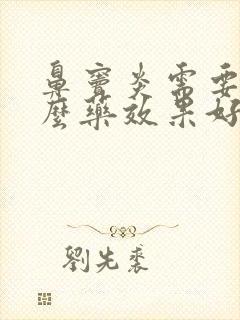 鼻竇炎需要
麼藥效果好
劉先裘